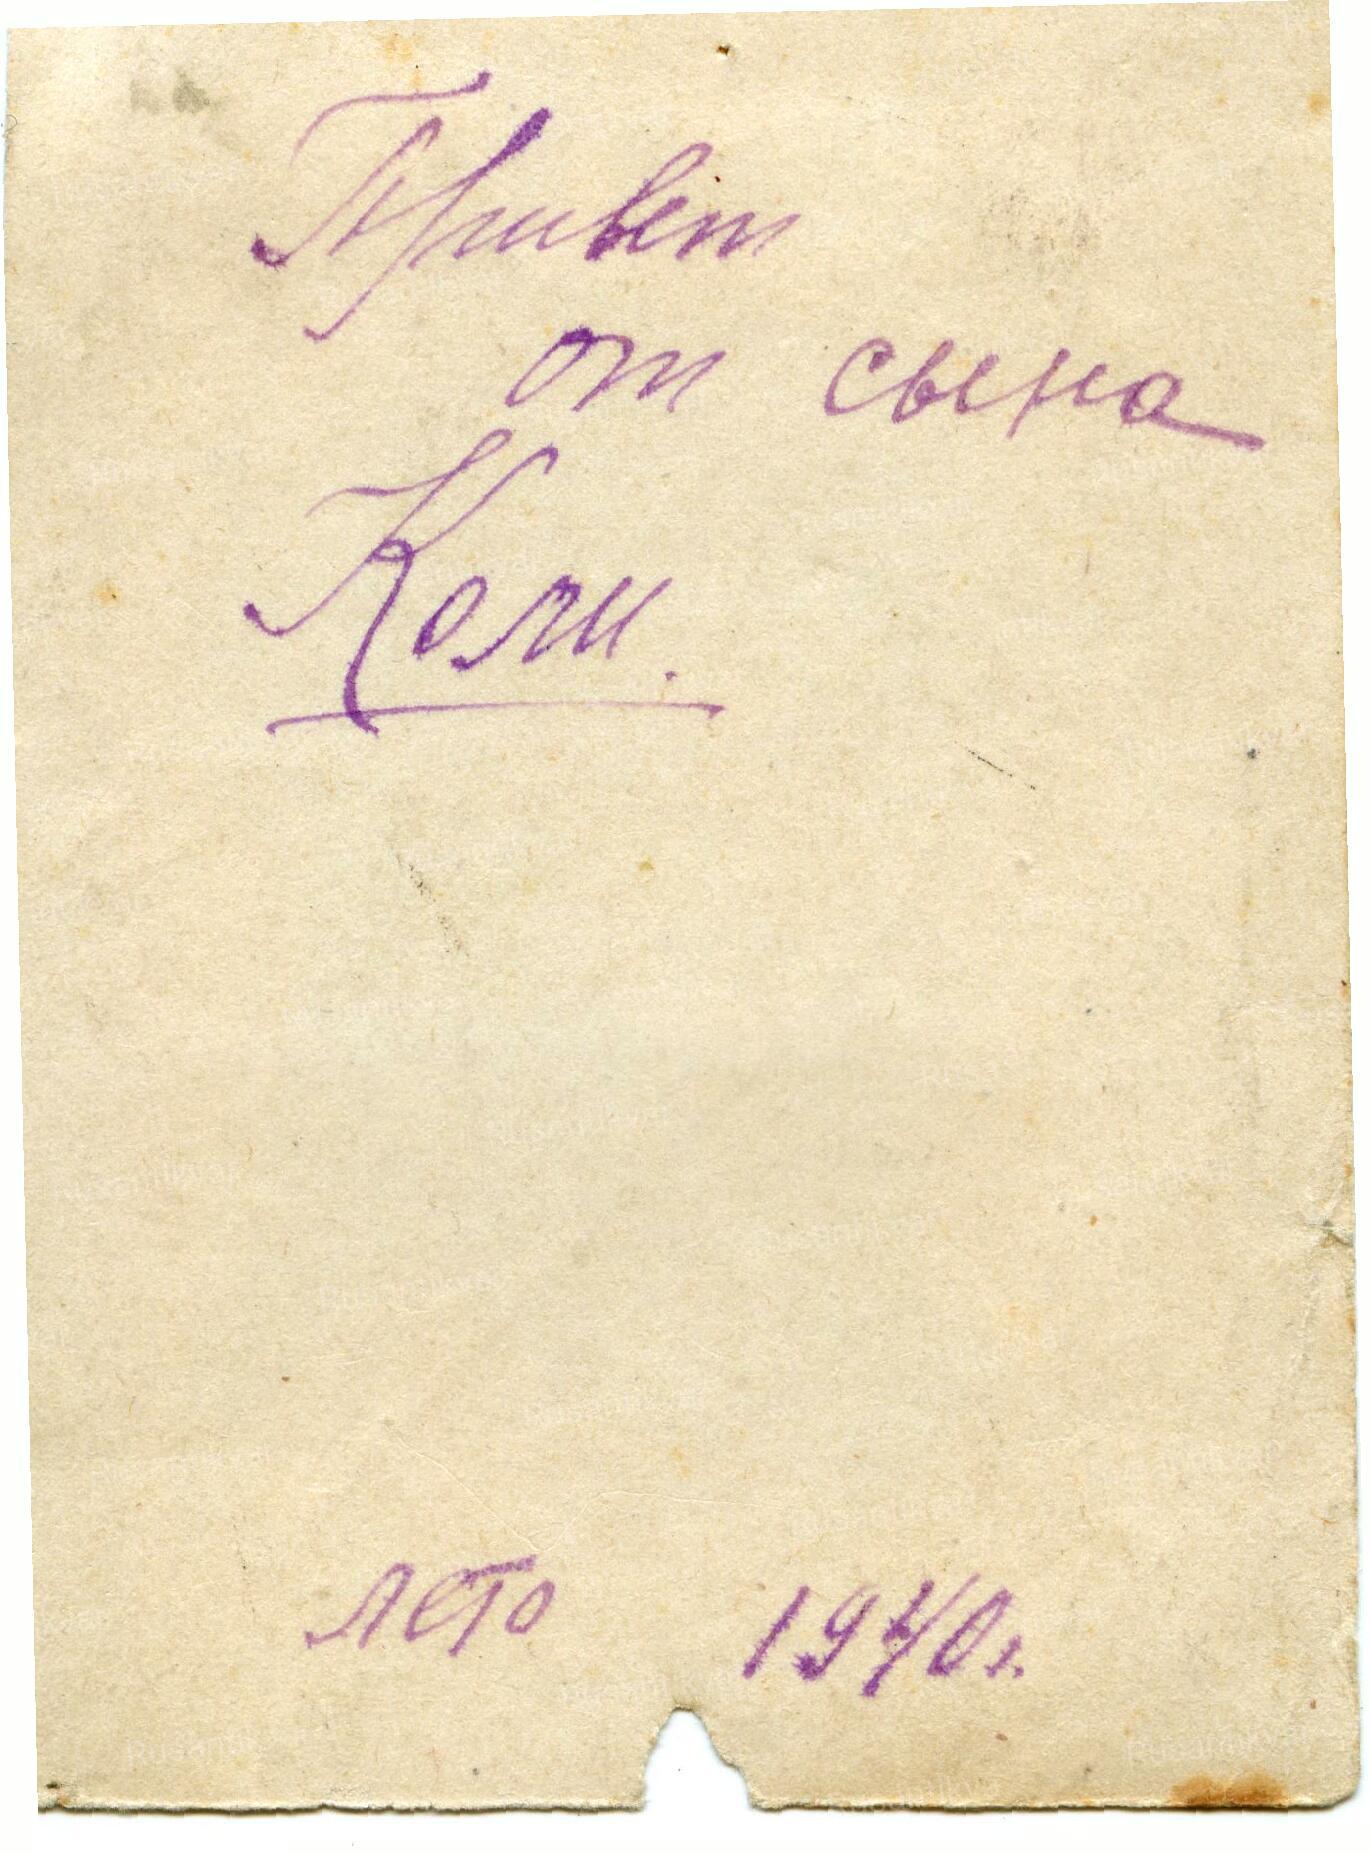 Привет
от сына
Коли.
лето 1940 г.